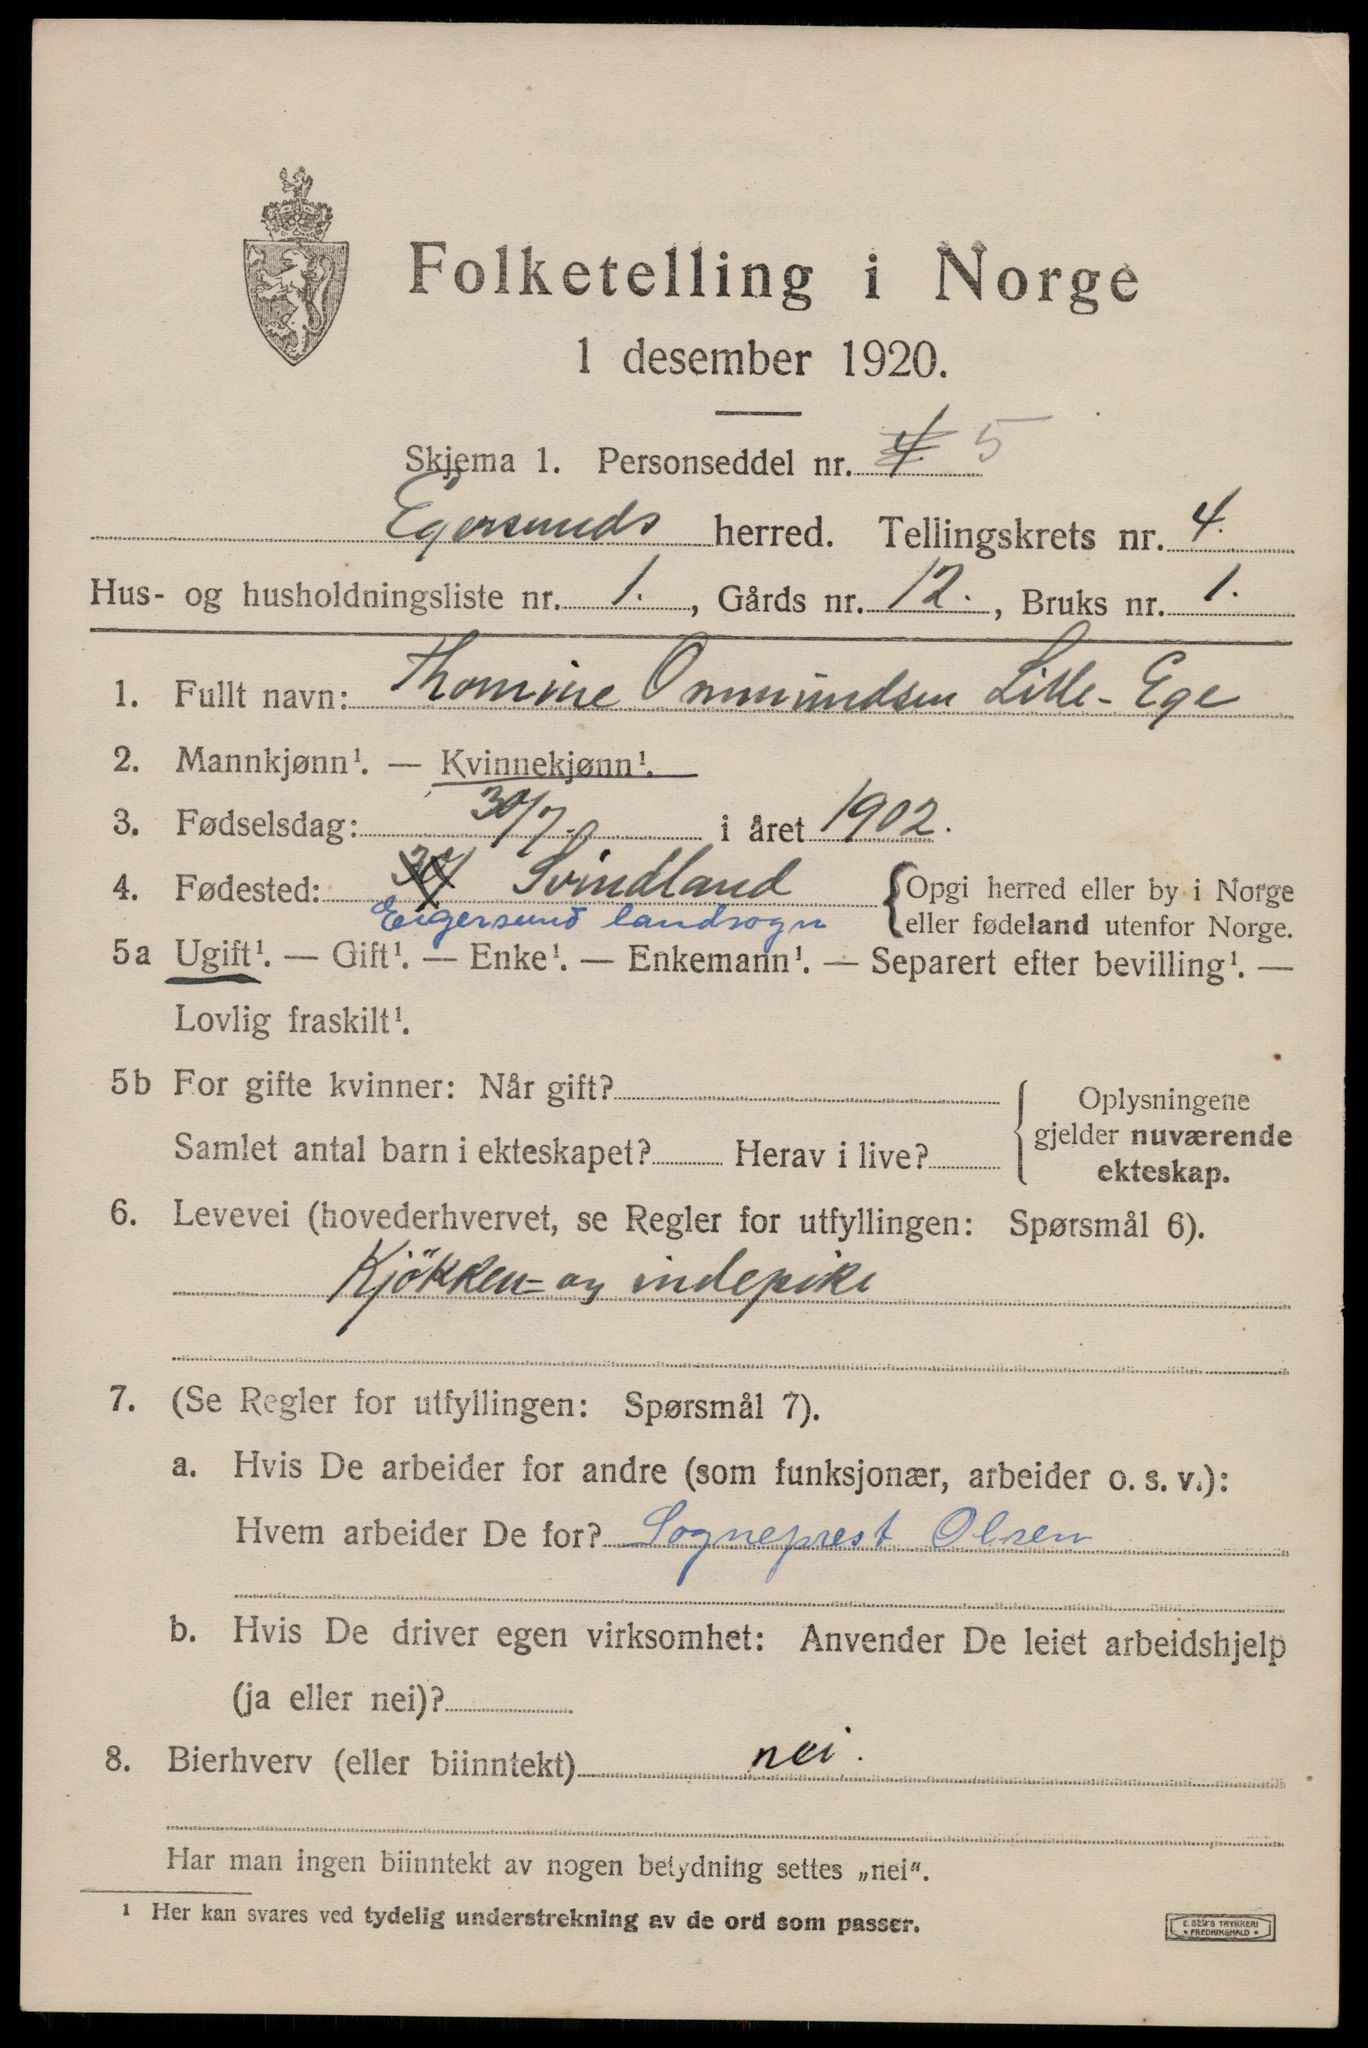 Folketelling i Norge
1 desember 1920.
Skjema 1. Personseddel nr. 4. 5
Egersunds herred. Tellingskrets nr. 4.
Hus- og husholdningsliste nr. 1., Gårds nr. 12., Bruks nr. 1.
1. Fullt navn: Thomine Ommundsen Lille-Ege
2. Mannkjønn¹. — Kvinnekjønn¹.
3. Fødselsdag: 30/7. i året 1902.
4. Fødested: Svindland {Opgi herred eller by i Norge
Eigersund landsogn eller fødeland utenfor Norge.
5a Ugift¹. — Gift¹. — Enke¹. — Enkemann¹. — Separert efter bevilling¹. —
Lovlig fraskilt¹.
5b For gifte kvinner: Når gift? Oplysningene
gjelder nuværende
Samlet antal barn i ekteskapet? Herav i live? ekteskap.
6. Levevei (hovederhvervet, se Regler for utfyllingen: Spørsmål 6).
Kjökken- og indepike
7. (Se Regler for utfyllingen: Spørsmål 7).
a. Hvis De arbeider for andre (som funksjonær, arbeider o. s. v.):
Hvem arbeider De for? Sogneprest Olsen
b. Hvis De driver egen virksomhet: Anvender De leiet arbeidshjelp
(ja eller nei)?
8. Bierhverv (eller biinntekt) nei.
Har man ingen biinntekt av nogen betydning settes „nei".
¹ Her kan svares ved tydelig understrekning av de ord som passer.
E. SEM'S TRYKKERI
FREDRIKSHALD